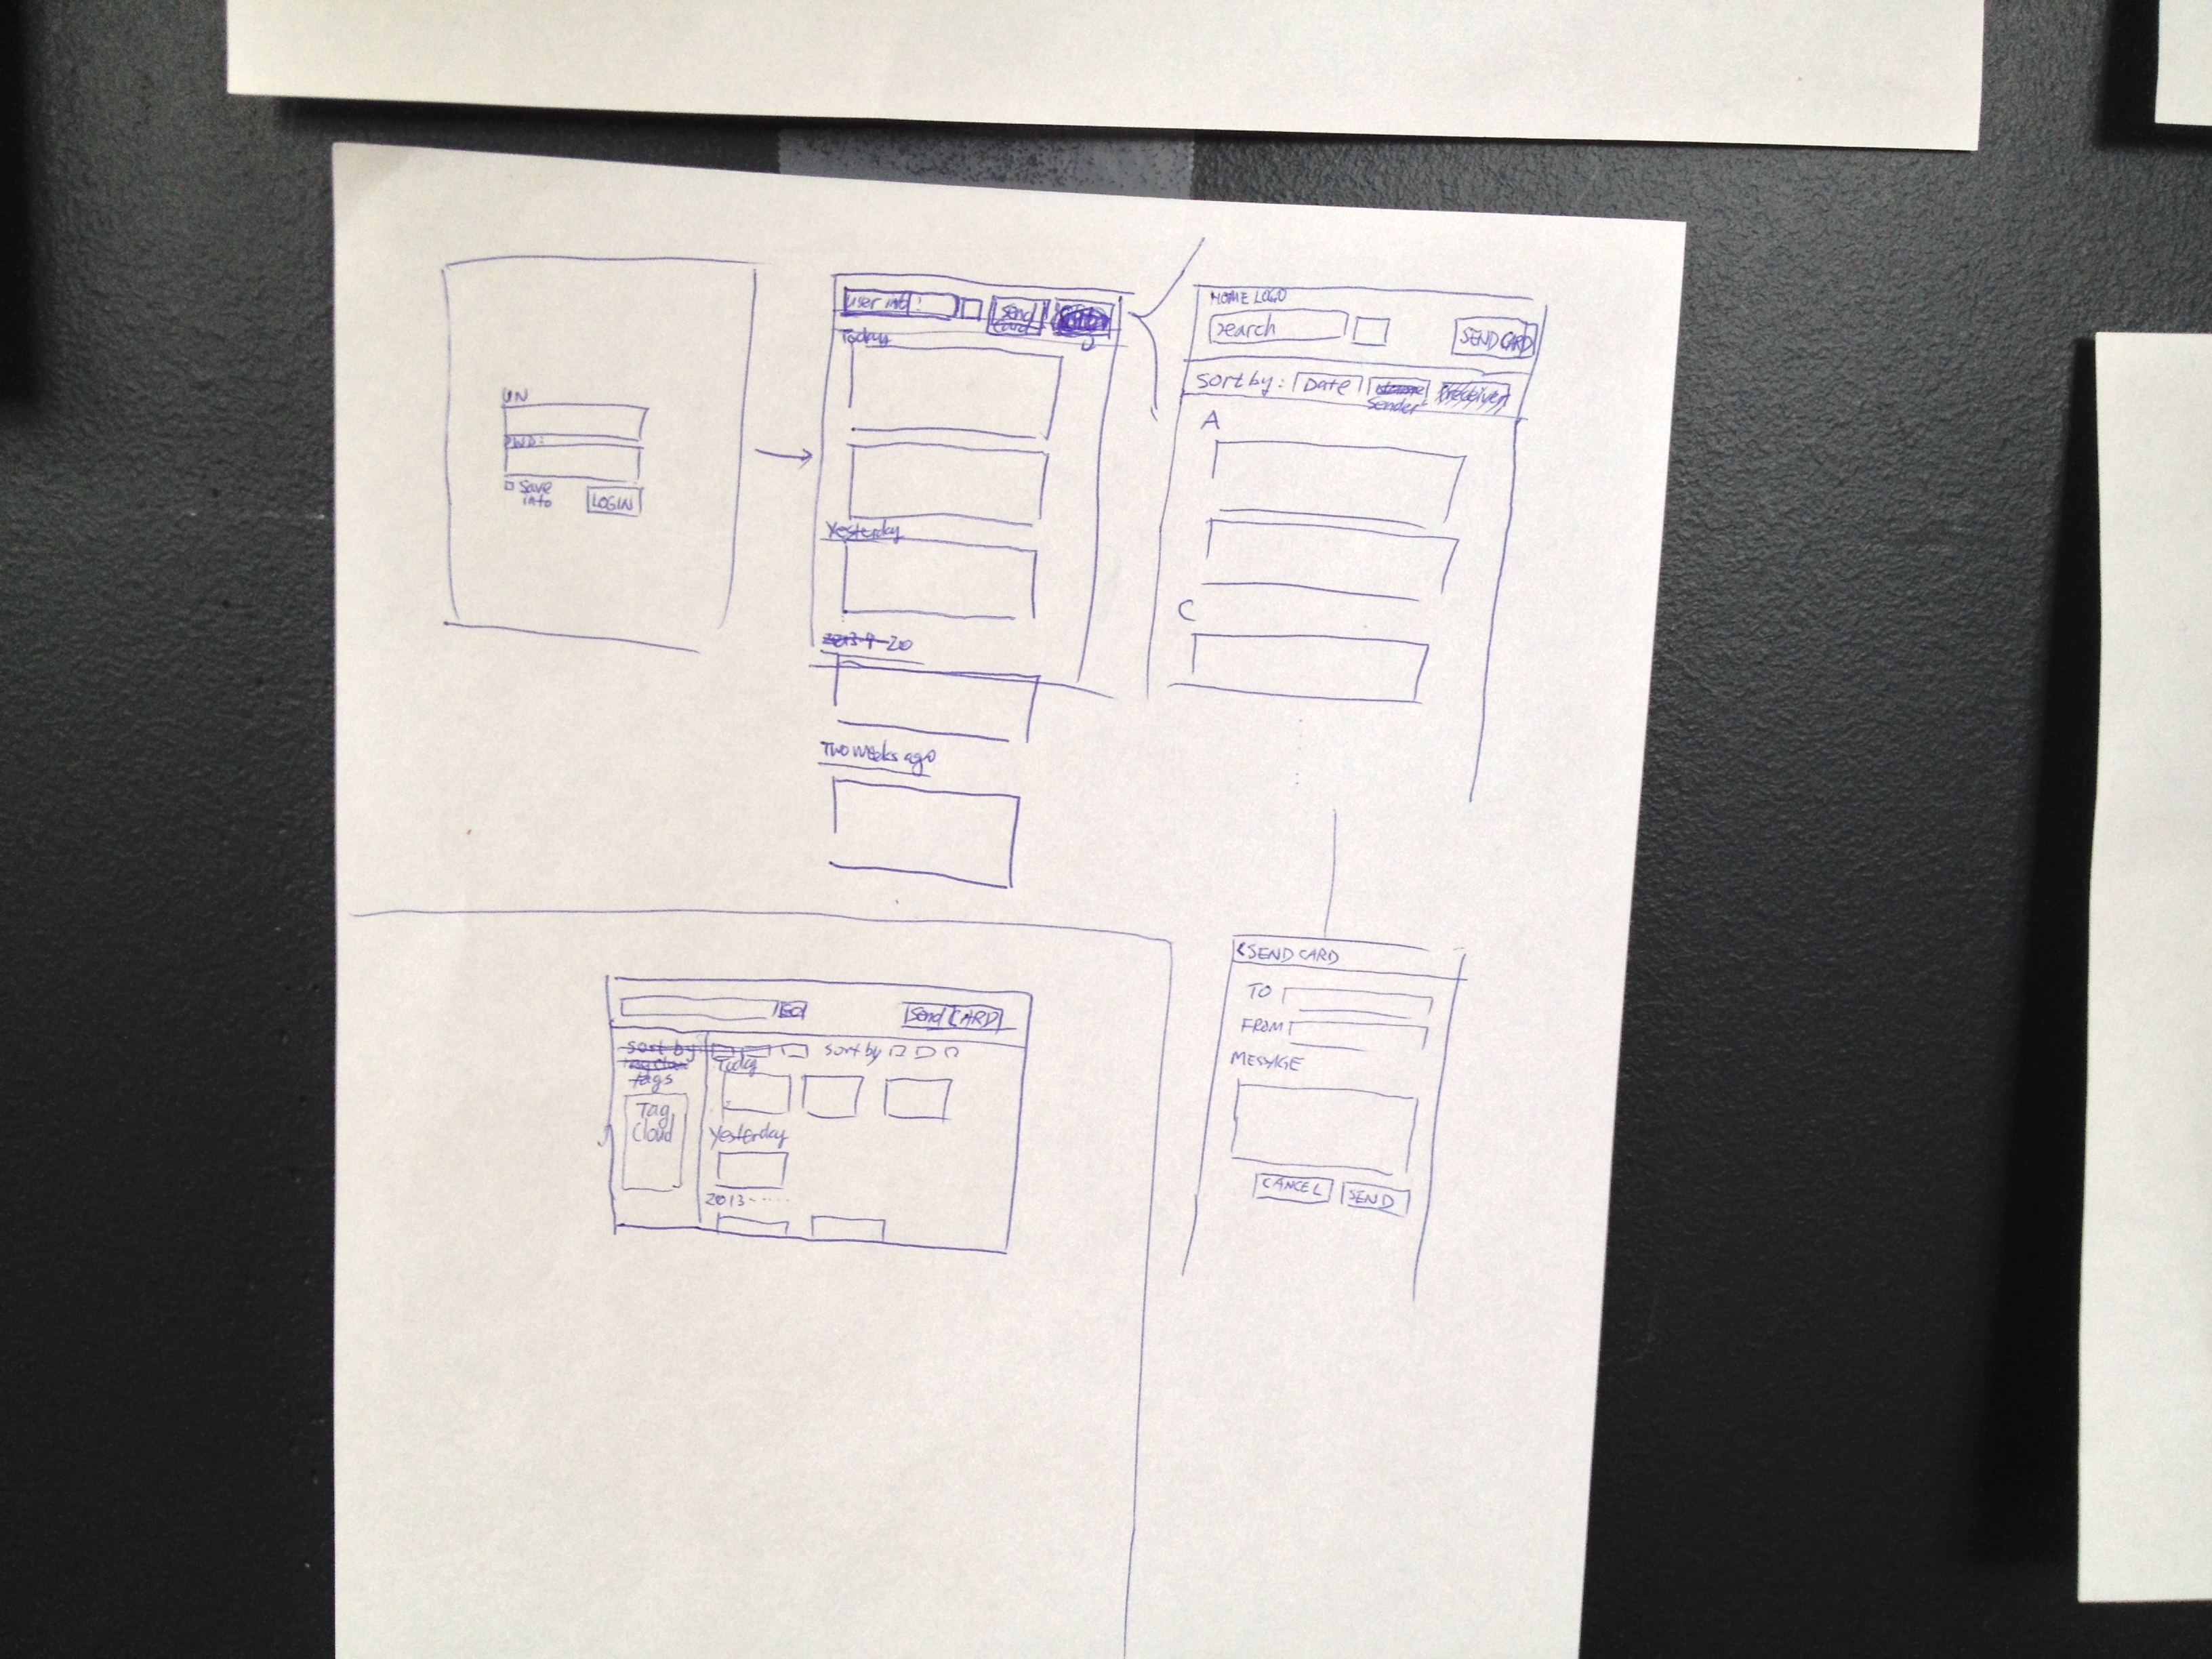 UN
PWD:
Save
info
LOGIN
user info
Send
Card
Today
Yesterday
2013-9-20
Two weeks ago
HOME LOGO
search
SEND CARD
Sort by: Date
Sender
Receiver
A
C
GO
Send CARD
sort by:
tags
sort by
Today
Tag
Cloud
Yesterday
2013------
<SEND CARD
TO
FROM
MESSAGE
CANCEL
SEND